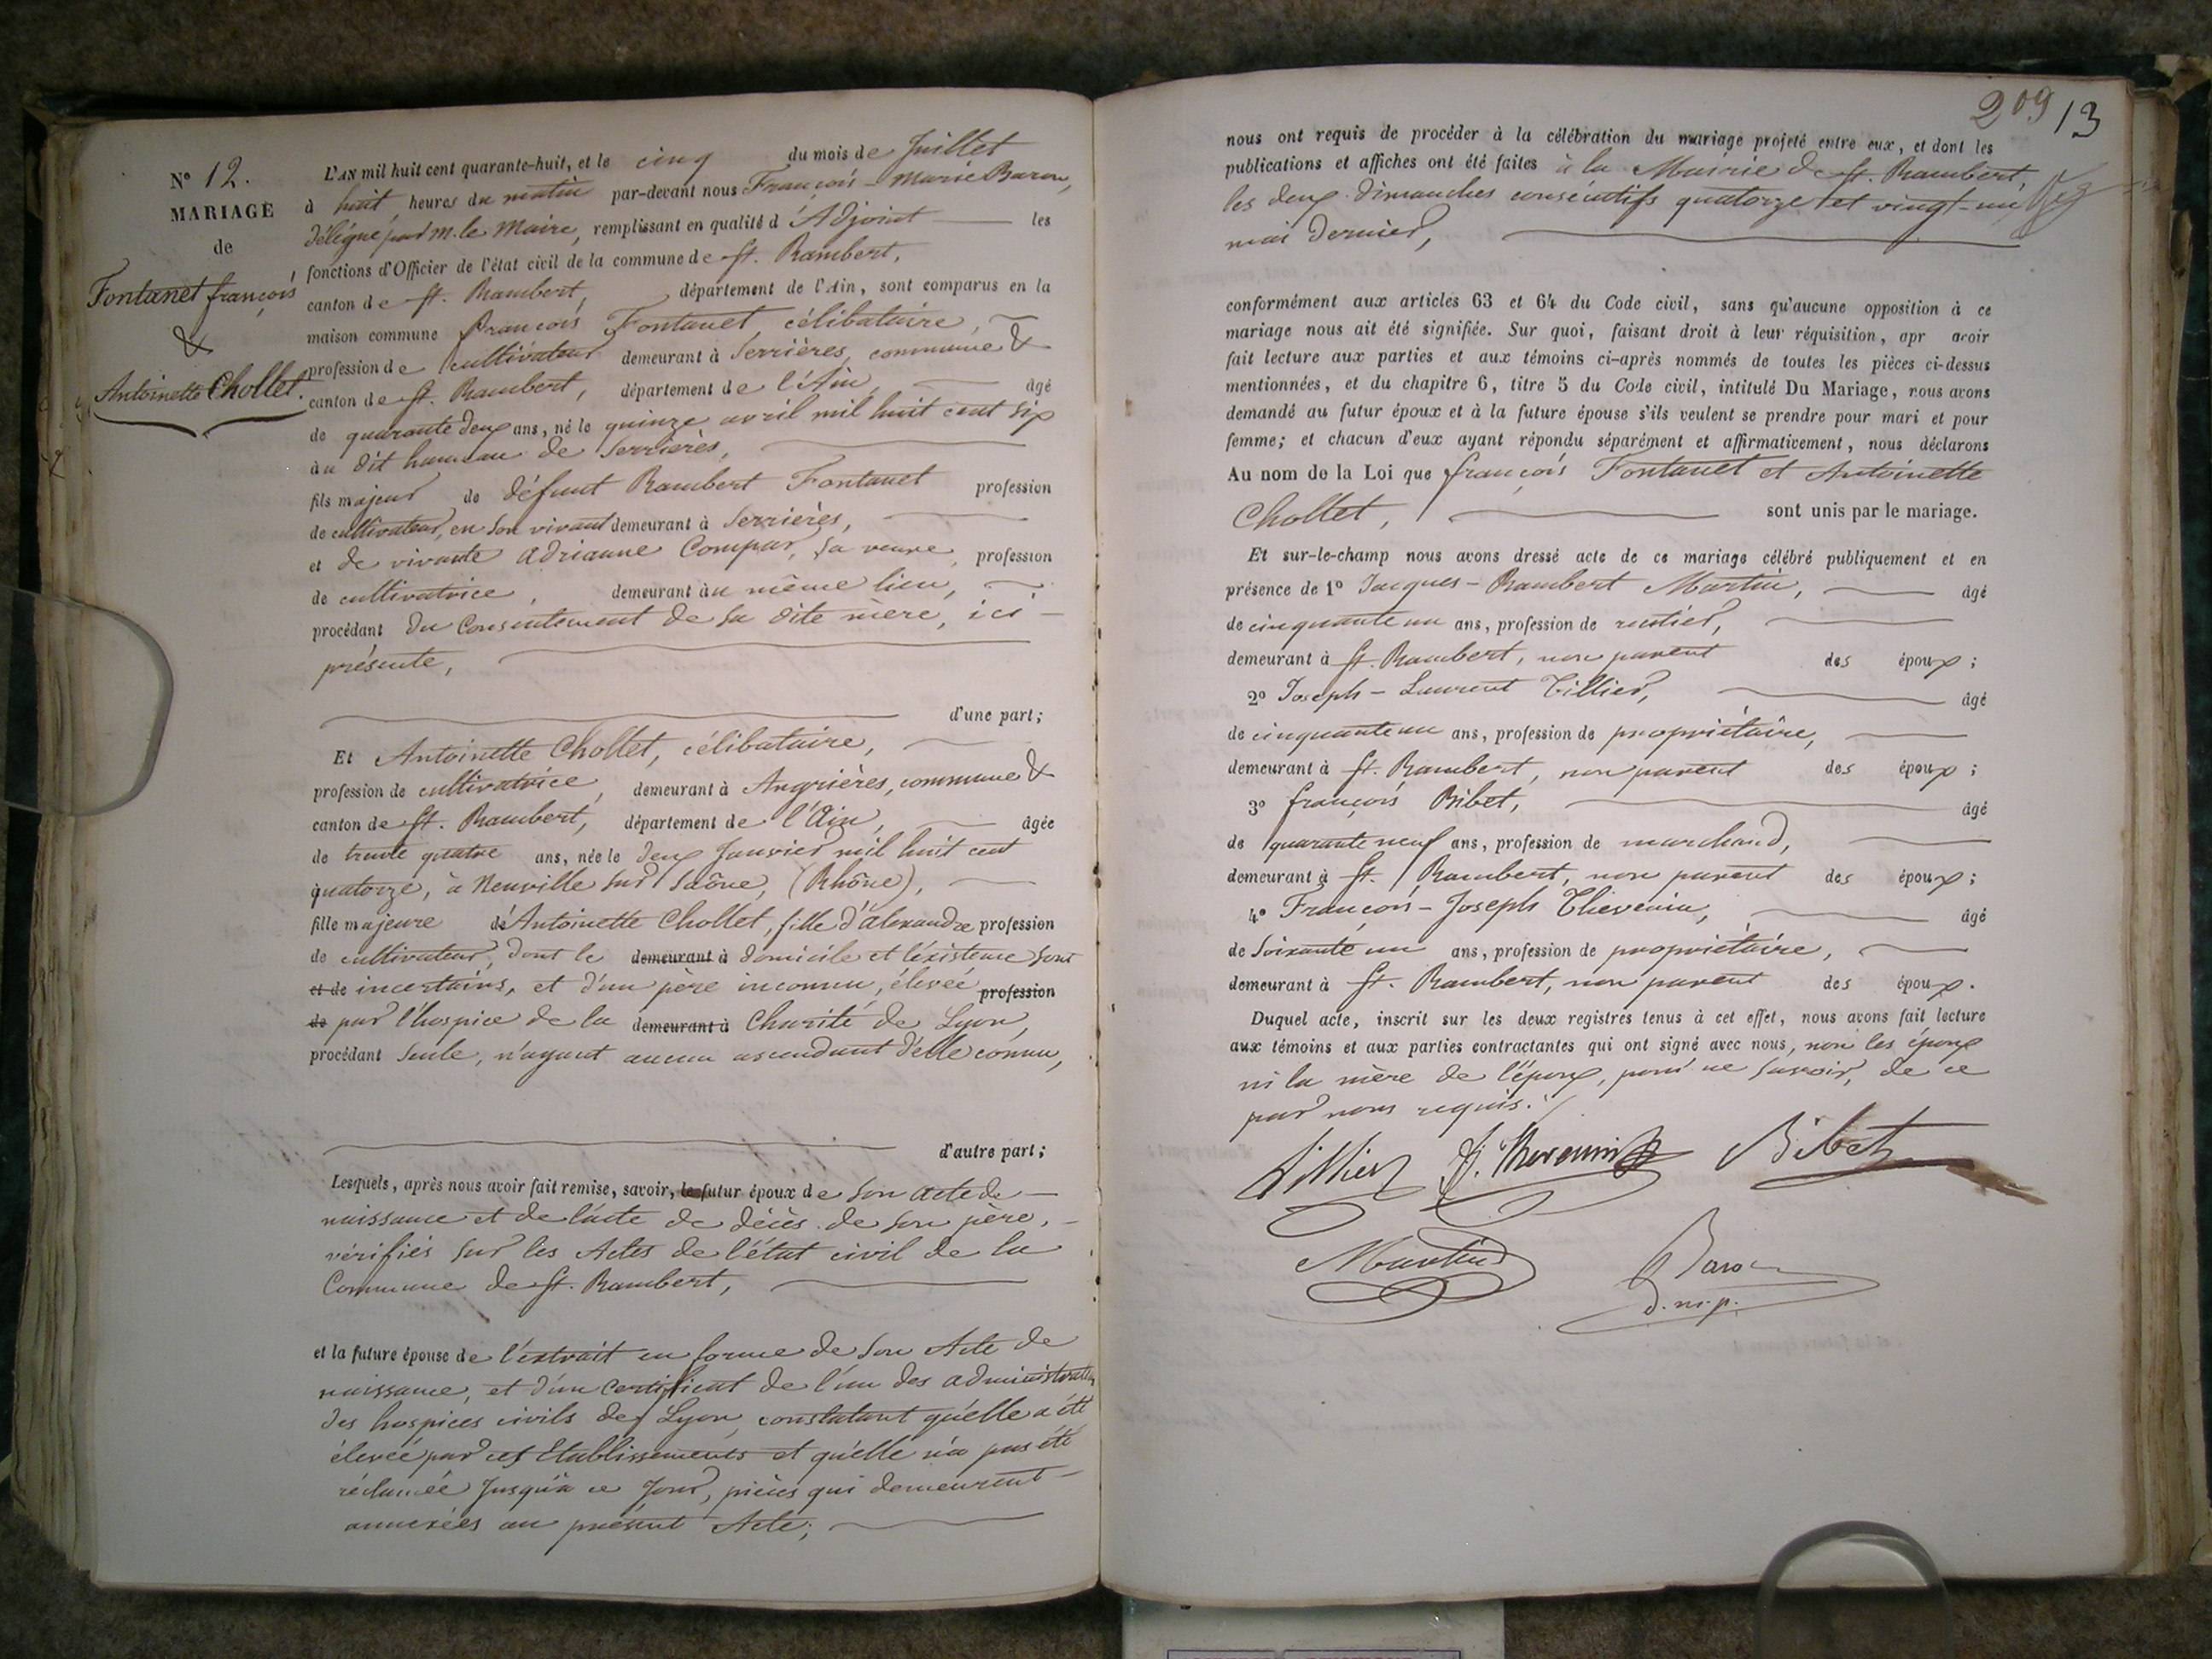 N° 12.
MARIAGE
de
Fontanet françois
&
Antoinette Chollet.
L'AN mil huit cent quarante-huit, et le cinq du mois de Juillet
à huit heures du matin par-devant nous François-Marie Baron,
délégué par m. le Maire, remplissant en qualité d'Adjoint les
fonctions d'Officier de l'état civil de la commune de St. Rambert,
canton de St. Rambert, département de l'Ain, sont comparus en la
maison commune françois Fontanet, célibataire,
profession de cultivateur demeurant à Serrières, commune &
canton de St. Rambert, département de l'Ain, âgé
de quarante deux ans, né le quinze avril mil huit cent six
au dit hameau de Serrières,
fils majeur de défunt Rambert Fontanet profession
de cultivateur, en son vivant demeurant à Serrières,
et de vivante adrianne Compar, sa veuve, profession
de cultivatrice, demeurant au même lieu,
procédant du Consentement de sa dite mère, ici
présente,
d'une part;
Et Antoinette Chollet, célibataire,
profession de cultivatrice, demeurant à Angrières, commune &
canton de St. Rambert, département de l'Ain, âgée
de trente quatre ans, née le deux Janvier mil huit cent
quatorze, à Neuville sur Saône, (Rhône),
fille majeure de Antoinette Chollet, fille d'alexandre profession
de cultivateur, dont le demeurant à domicile et l'existence sont
et de incertains, et d'un père inconnu, élevée profession
de par l'hospice de la demeurant à Charité de Lyon,
procédant seule, n'ayant aucun ascendant d'elle connu,
d'autre part;
Lesquels, après nous avoir fait remise, savoir, le futur époux de son acte de
naissance et de l'acte de décès de son père,
vérifiés sur les Actes de l'état civil de la
Commune de St. Rambert,
et la future épouse de l'extrait en forme de son Acte de
naissance, et d'un certificat de l'un des administrateurs
des hospices civils de Lyon, constatant qu'elle a été
élevée par ces Etablissements et qu'elle n'a pas été
réclamée Jusqu'à ce Jour, pièces qui demeurent
annexées au présent Acte;
209 13
nous ont requis de procéder à la célébration du mariage projeté entre eux, et dont les
publications et affiches ont été faites à la Mairie de St. Rambert,
les deux dimanches consécutifs quatorze et vingt-un
mai dernier,
conformément aux articles 63 et 64 du Code civil, sans qu'aucune opposition à ce
mariage nous ait été signifiée. Sur quoi, faisant droit à leur réquisition, apr avoir
fait lecture aux parties et aux témoins ci-après nommés de toutes les pièces ci-dessus
mentionnées, et du chapitre 6, titre 5 du Code civil, intitulé Du Mariage, nous avons
demandé au futur époux et à la future épouse s'ils veulent se prendre pour mari et pour
femme; et chacun d'eux ayant répondu séparément et affirmativement, nous déclarons
Au nom de la Loi que françois Fontanet et Antoinette
Chollet, sont unis par le mariage.
Et sur-le-champ nous avons dressé acte de ce mariage célébré publiquement et en
présence de 1° Jacques-Rambert Martin, âgé
de cinquante un ans, profession de rentier,
demeurant à St. Rambert, non parent des époux;
2° Joseph-Laurent Tillier, âgé
de cinquante un ans, profession de propriétaire,
demeurant à St. Rambert, non parent des époux;
3° françois Bibet, âgé
de quarante neuf ans, profession de marchand,
demeurant à St. Rambert, non parent des époux;
4° François-Joseph Thevenin, âgé
de soixante un ans, profession de propriétaire,
demeurant à St. Rambert, non parent des époux.
Duquel acte, inscrit sur les deux registres tenus à cet effet, nous avons fait lecture
aux témoins et aux parties contractantes qui ont signé avec nous, non les époux
ni la mère de l'époux, pour ne savoir, de ce
par nous requis.
Tillier J. Thevenin Bibet
Martin Baron
d. m. p.